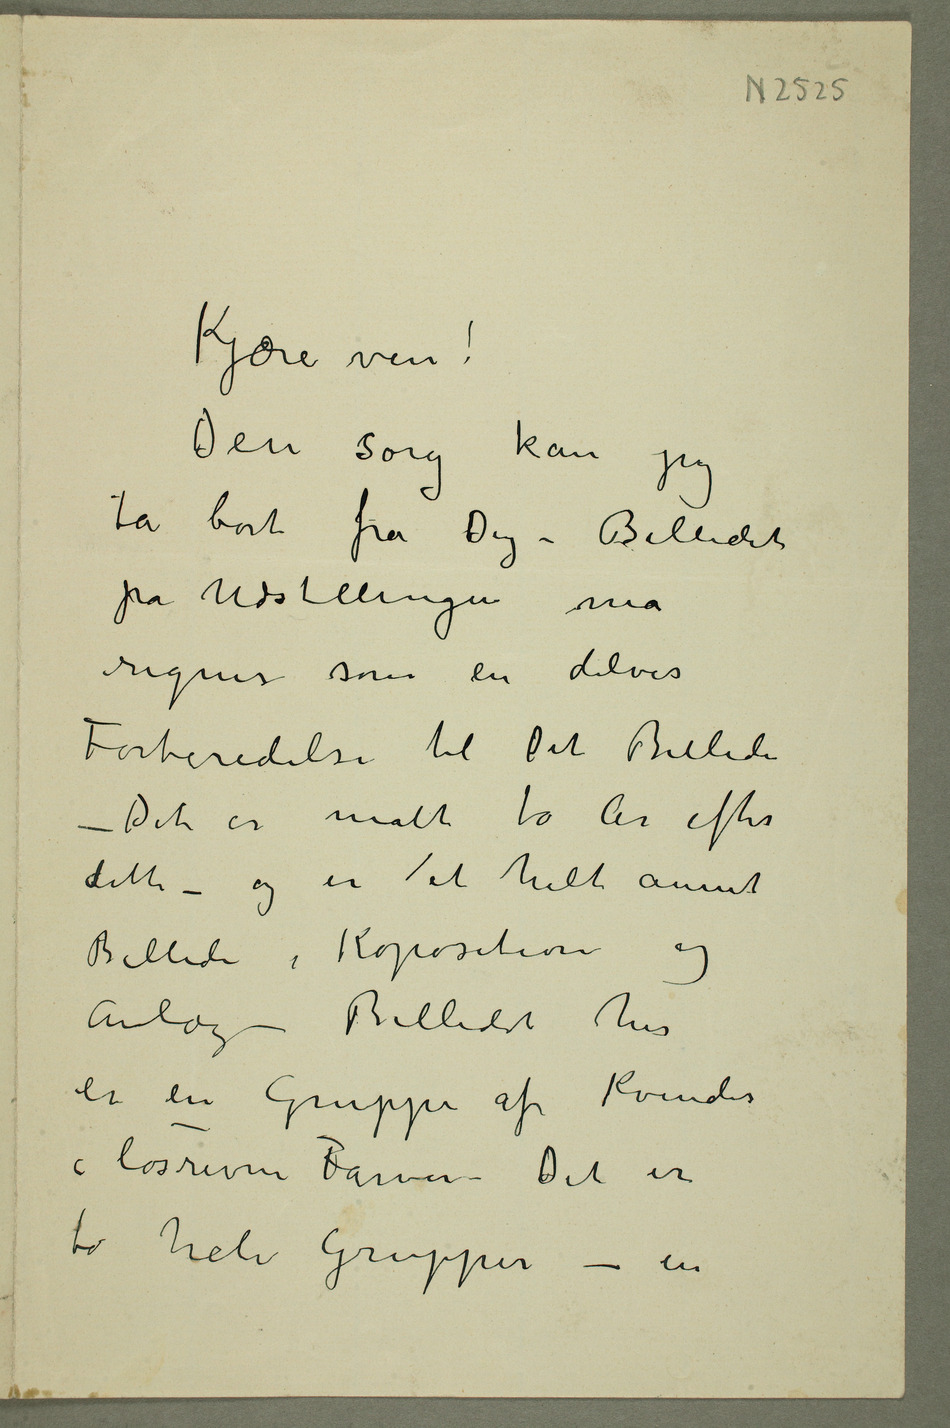 N 2525
Kjære ven!
Den sorg kan jeg
ta bort fra Dig – Billedet
pa Udstillingen ma
regnes som en delvis
Forberedelse til Dit Billede
– Det er malt to År efter
dette – og er et helt annet
Billede i Koposition og
Anlæg – Billedet her
er en Gruppe af Kvinder
i løsrevne Farver – Dit er
to hele Grupper – en